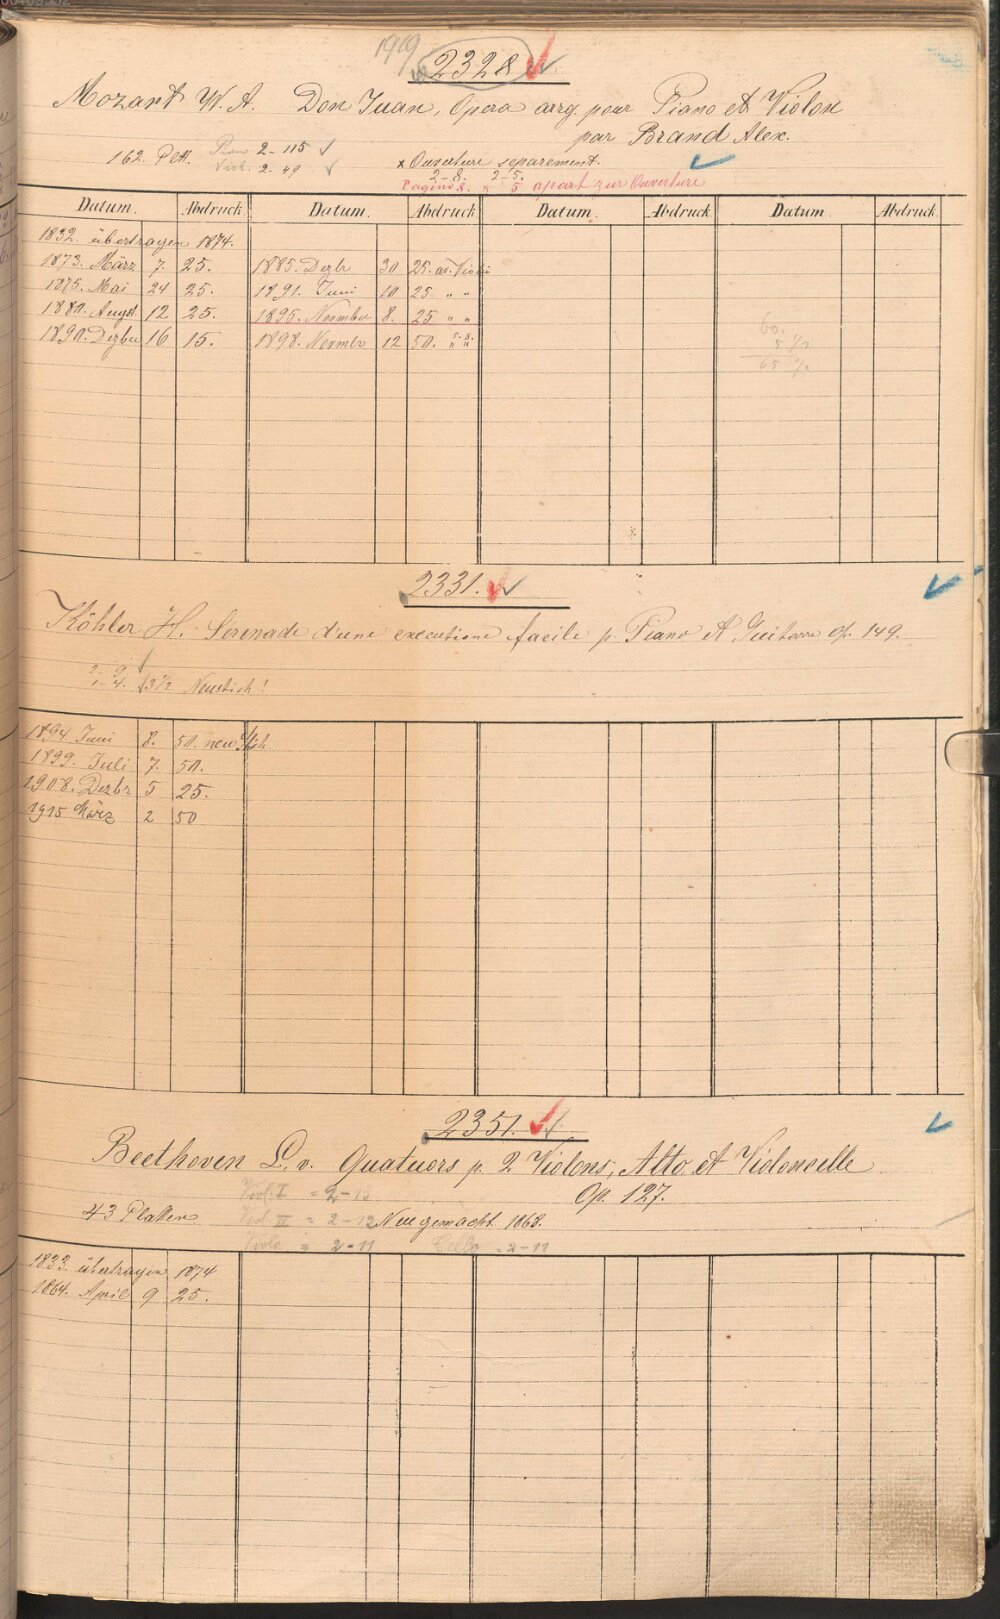 1919
2328
Mozart W. A. Don Juan, Opera arrg. pour Piano et Violon
par Brand Alex.
162. Pltt. Piano 2-115
Viol. 2-49
x Ouverture separement.
2-8. 2-5.
Pagina 8. 5 apart zur Ouverture
Datum. Abdruck Datum. Abdruck Datum. Abdruck. Datum. Abdruck.
1832. übertragen 1874.
1873. März 7. 25. 1885. Dezbr 30 25.
1875. Mai 24 25. 1891. Juni 10 25 " "
1880. Augst 12 25. 1895. Novmber 8. 25 " "
1890. Dezber 16 15. 1898. Novmbr 12 50. " "
60.
5 %
65 %
2331.
Köhler H. Serenade d'une executione facile p. Piano et Guitarre op. 149.
3 1/2 Neustich!
1894 Juni 8. 50. neu Stich
1899. Juli 7. 50.
1908. Dezbr 5 25.
1915 März 2 50
2351.
Beethoven L. v. Quatuors p. 2 Violons, Alto et Violoncelle
Op. 127.
Viol. I = 2-13
43 Platten Viol. II = 2-12 Neugemacht 1868.
Viola = 2-11 Cello = 2-11
1833. übertragen 1874
1864. April 9 25.